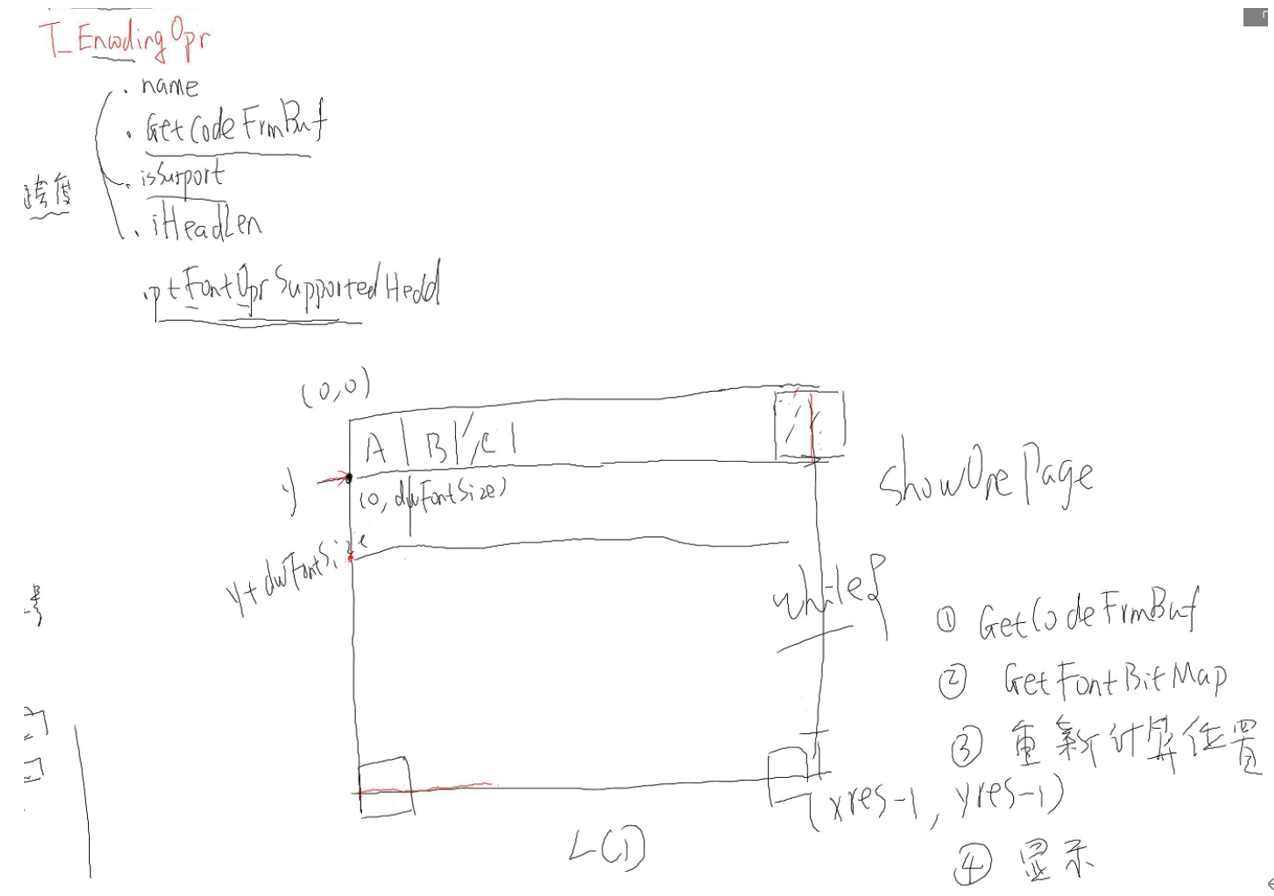 T_EncodingOpr
. name
. GetCodeFrmBuf
. isSurport
. iHeadLen
.ptFontOprSupportedHedd
(0,0)
A B C
y
(0, dwFontSize)
y+dwFontSize
showOnePage
while{
① GetCodeFrmBuf
② GetFontBitMap
③ 重新计算位置
(xres-1, yres-1)
④ 显示
LCD